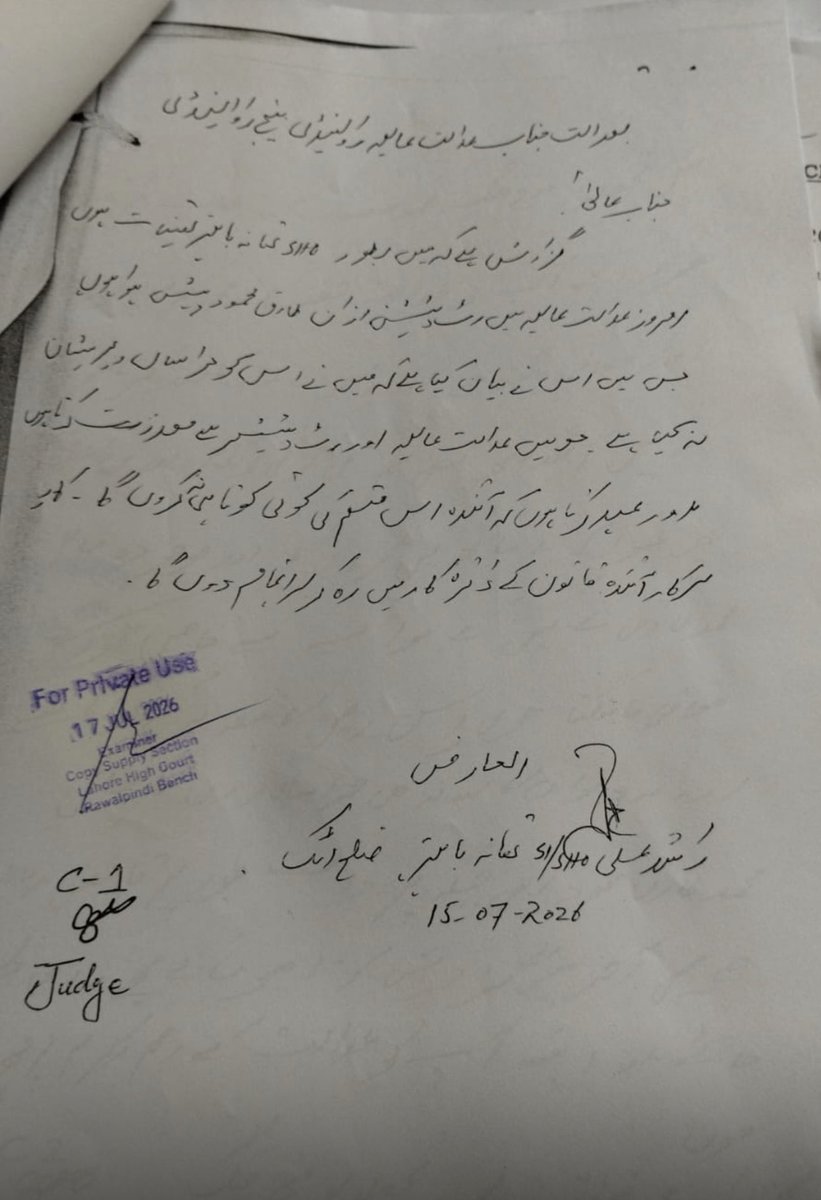 بعدالت جناب عدالت عالیہ راولپنڈی بینچ راولپنڈی
جناب عالیٰ!
گزارش ہے کہ میں بطور SHO تھانہ باہتر تعینات ہوں
امروز عدالت عالیہ میں رٹ پٹیشن ازان طارق محمود پیش ہوا ہوں
جس میں اس نے بیان کیا ہے کہ میں نے اس کو ہراساں و پریشان
کیا ہے جو میں عدالت عالیہ اور رٹ پٹیشنر سے معذرت کرتا ہوں
اور عہد کرتا ہوں کہ آئندہ اس قسم کی کوئی کوتاہی نہ کروں گا ۔ کار
سرکار آئندہ قانون کے دائرہ کار میں رہ کر سرانجام دوں گا ۔
For Private Use
17 JUL 2026
Examiner
Copy Supply Section
Lahore High Court
Rawalpindi Bench
العارض
علی SI/SHO تھانہ باہتر ضلع اٹک
15-07-2026
C-1
Judge